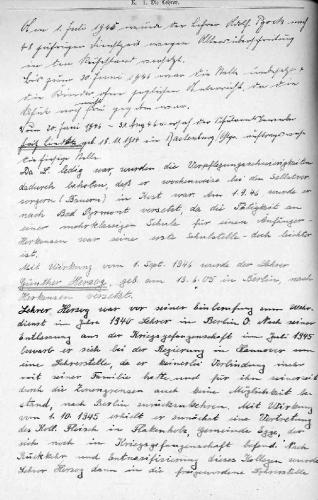 K. 1. Die Lehrer.
Am 1. Juli 1945 wurde der Lehrer Adolf Brock nach
48 jährigen Dienstzeit wegen Altersüberschreitung
in den Ruhestand versetzt.
Bis zum 20. Juni 1946 war die Stelle unbesetzt
die Kinder ohne jeglichen Unterricht, da die
Schule
Vom 20. Juni 1946 - 31. Aug. 46 versah der
Fritz geb. 18.11.1914 in Rastenburg, Ostpr. auftragsweise
die hiesige Stelle.
Da L. ledig war, wurden die Verpflegungsschwierigkeiten
dadurch behoben, daß er wochenweise bei den Selbstver-
sorgern (Bauern) in Kost war. Am 1.9.46 wurde er
nach Bad Pyrmont versetzt, da die Tätigkeit an
einer mehrklassigen Schule für einen Anfänger -
Herkensen war seine erste Schulstelle - doch leichter
ist.
Mit Wirkung vom 1. Sept. 1946 wurde der Lehrer
Günther Herzog, geb. am 13.6.05 in Berlin, nach
Herkensen versetzt.
Lehrer Herzog war vor seiner Einberufung zum Wehr-
dienst im Jahre 1940 Lehrer in Berlin O. Nach seiner
Entlassung aus der Kriegsgefangenschaft im Juli 1945
bewarb er sich bei der Regierung in Hannover um
eine Lehrerstelle, da er keinerlei Verbindung mehr
mit seiner Familie hatte und für ihn seinerzeit
durch die Zonengrenzen auch keine Möglichkeit be-
stand, nach Berlin zurückzukehren. Mit Wirkung
vom 1.10.1945 erhielt er zunächst eine Vertretung
des Koll. in Flakenholz, Gemeinde, der
sich noch in Kriegsgefangenschaft befand. Nach
Rückkehr und Entnazifizierung dieses Kollegen wurde
Lehrer Herzog dann in die freigewordene Lehrerstelle